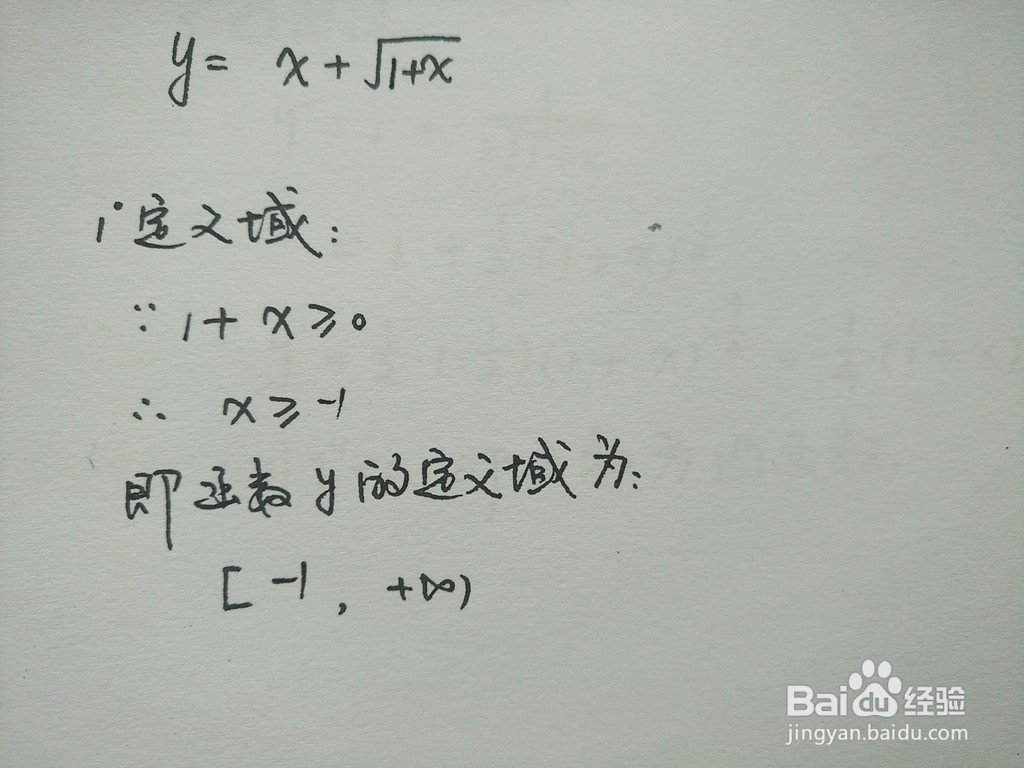 y = x + √1+x
1° 定义域:
∵ 1 + x ≥ 0
∴ x ≥ -1
即函数 y 的定义域为:
[ -1 , +∞)
Bai du 经验
jingyan.baidu.com